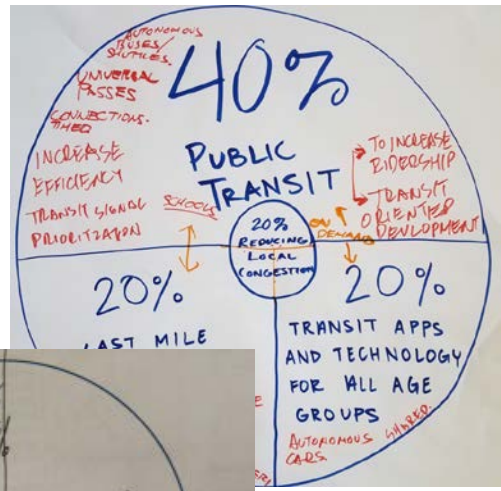 AUTONOMOUS
BUSES/
SHUTTLES.
UNIVERSAL
PASSES
CONNECTIONS-
TIMED
INCREASE
EFFICIENCY
TRANSIT SIGNAL
PRIORITIZATION
40%
PUBLIC
TRANSIT
SCHOOLS
TO INCREASE
RIDERSHIP
TRANSIT
ORIENTED
DEVLOPMENT
ON
DEMAND
20%
REDUCING
LOCAL
CONGESTION
20%
LAST MILE
20%
TRANSIT APPS
AND TECHNOLOGY
FOR ALL AGE
GROUPS
AUTONOMOUS SHARED
CARS